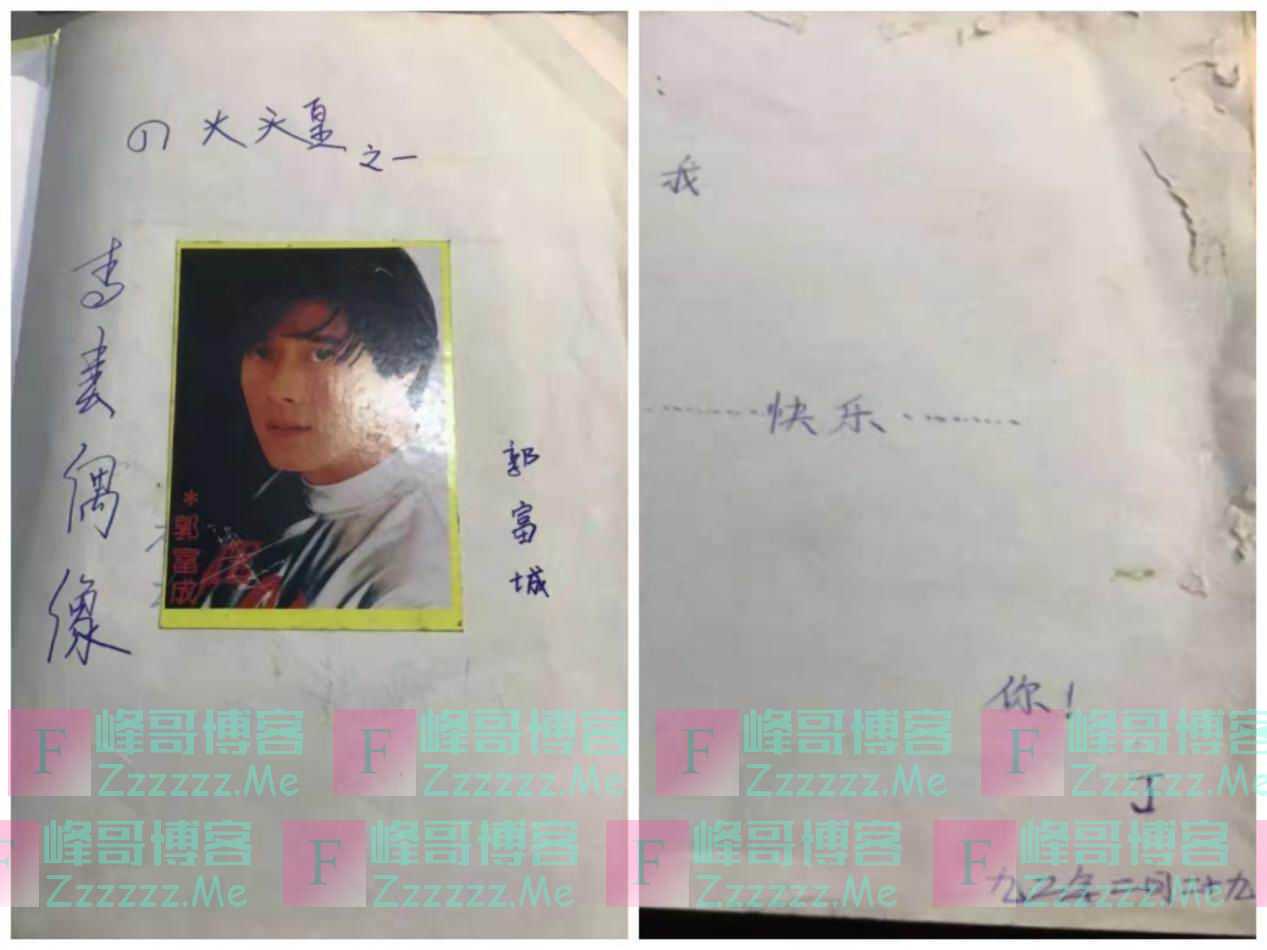 四大天皇之一
青春偶像
*郭富成
郭富城
我
快乐
你！
丁
九二年二月二十九
F 峰哥博客
Zzzzzz.Me
F 峰哥博客
Zzzzzz.Me
F 峰哥博客
Zzzzzz.Me
F 峰哥博客
Zzzzzz.Me
F 峰哥博客
Zzzzzz.Me
F 峰哥博客
Zzzzzz.Me
F 峰哥博客
Zzzzzz.Me
F 峰哥博客
Zzzzzz.Me